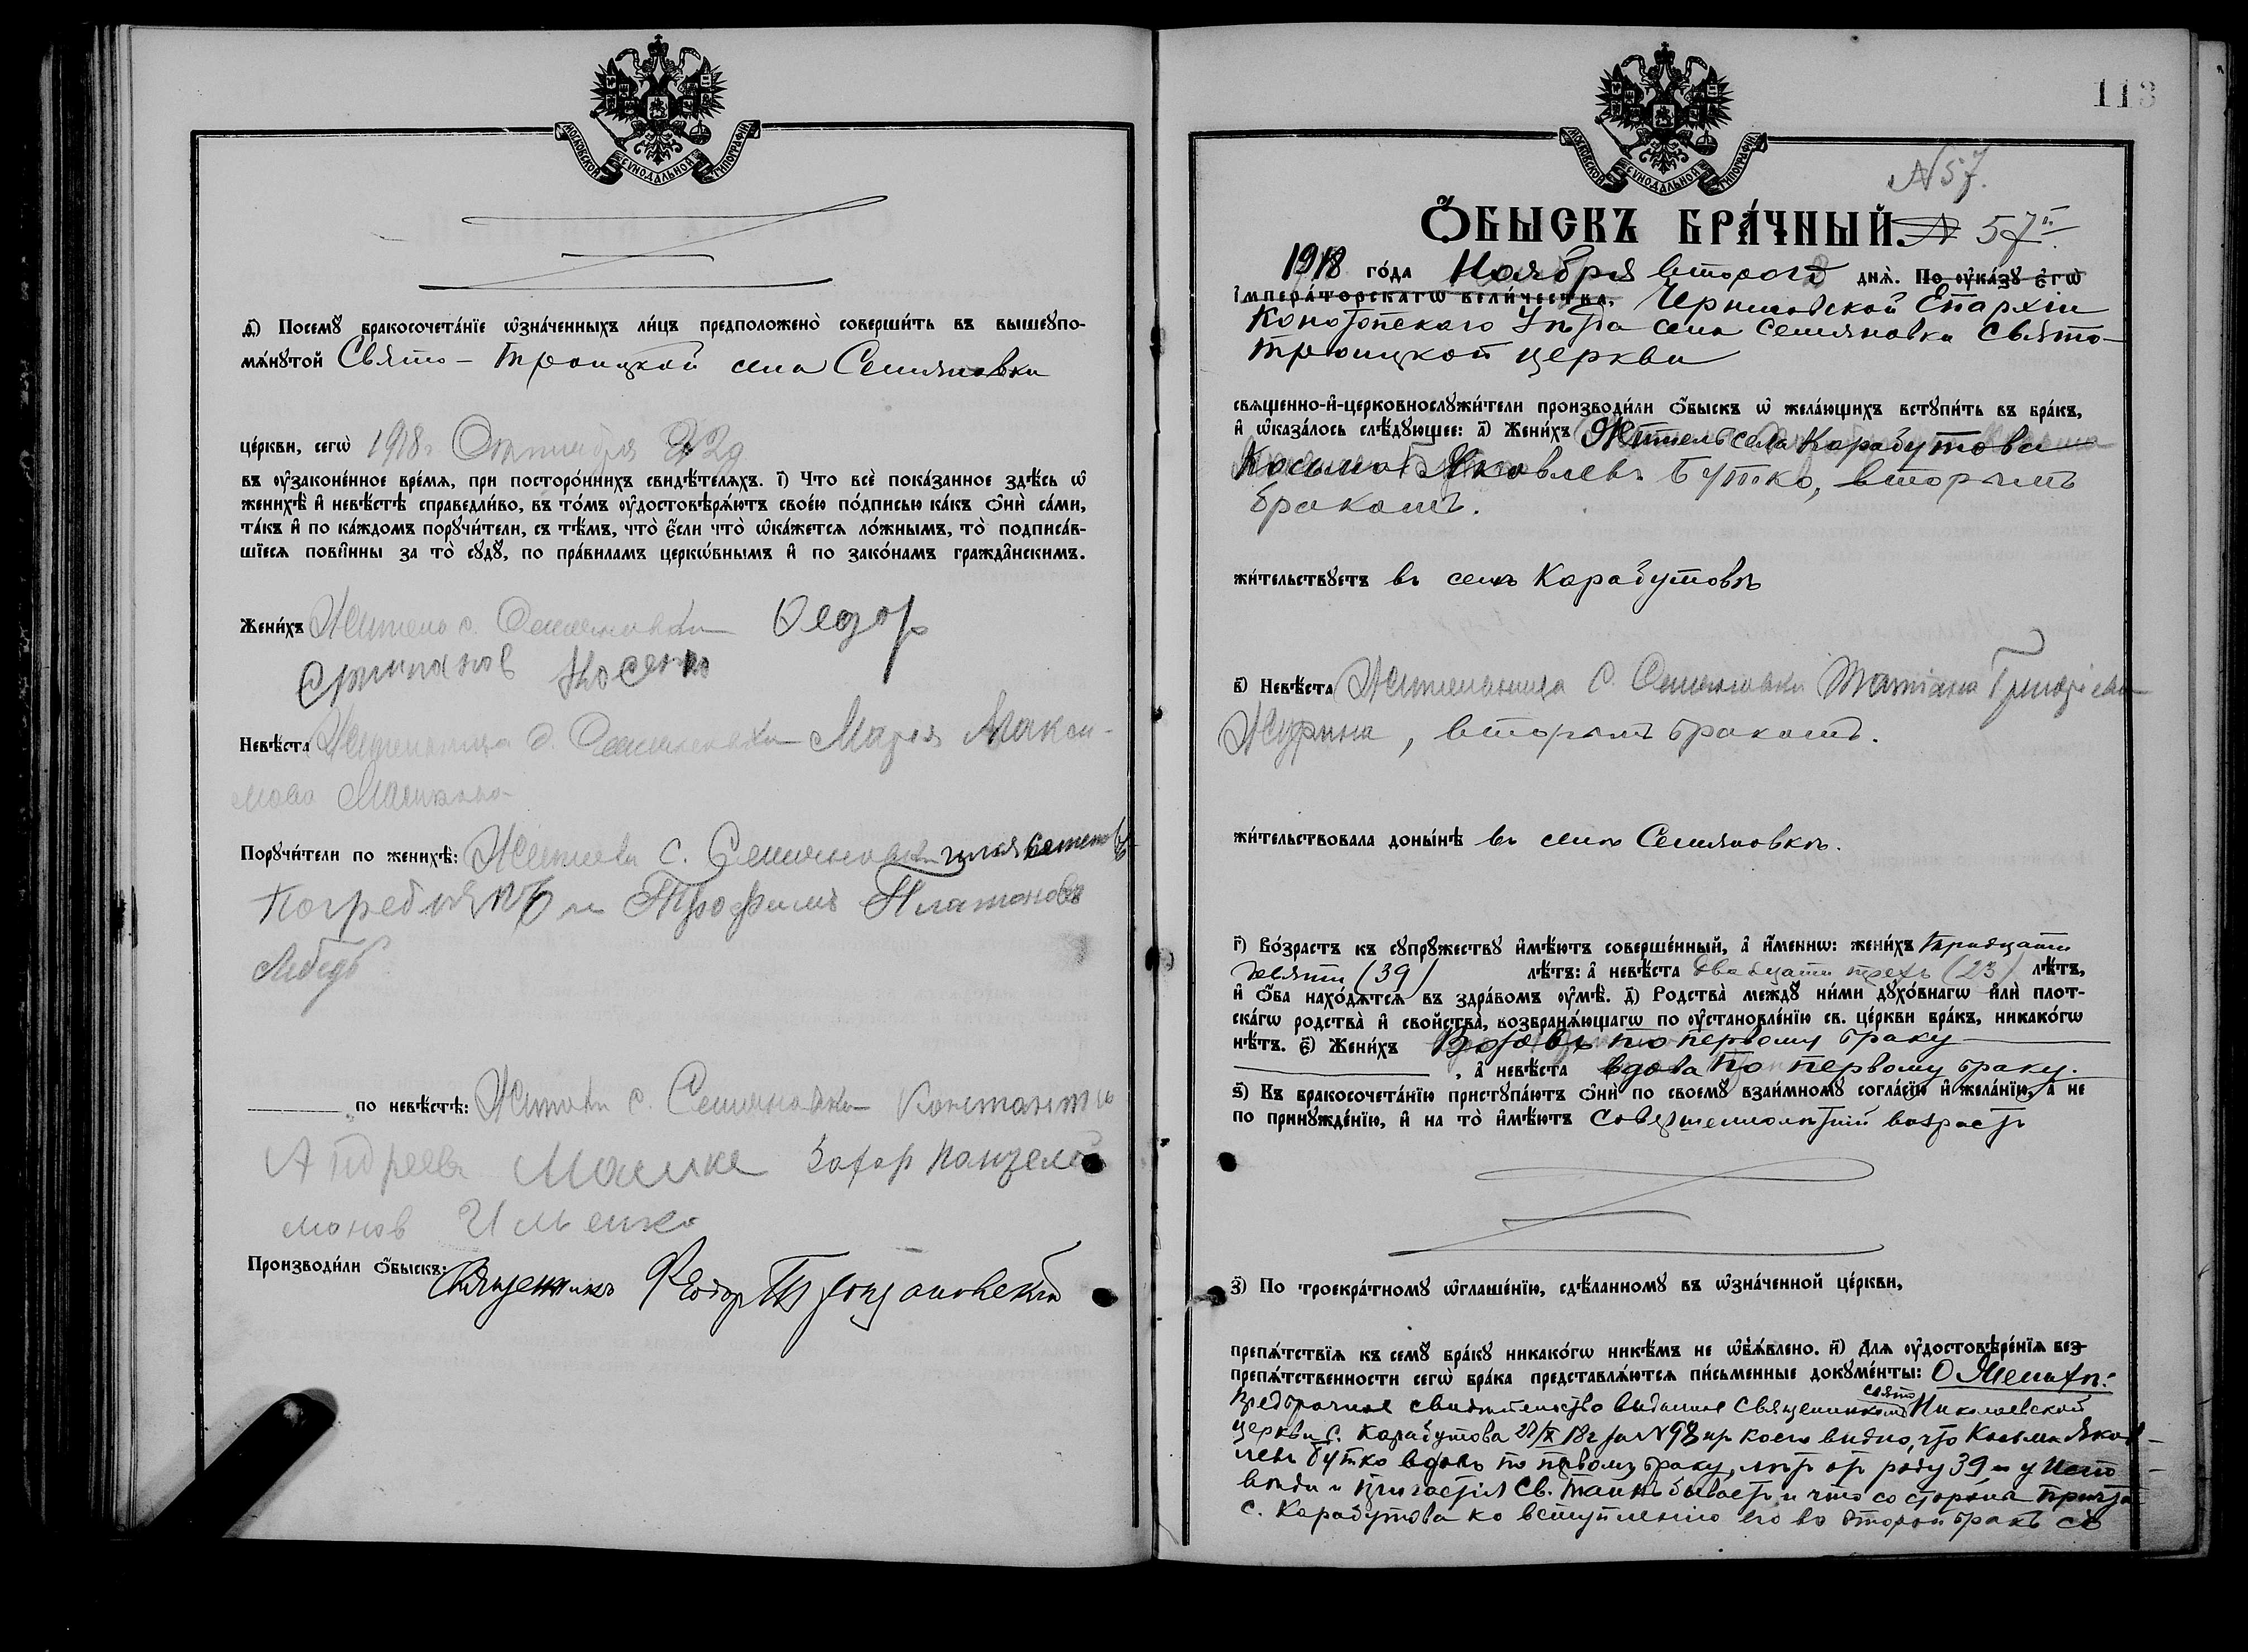 МОСКОВСКОЙ СѴНОДАЛЬНОЙ ТИПОГРАФІИ
д҃і) Посемꙋ̀ бракосочета́нїе ѡ҆зна́ченныхъ ли́цъ предположено̀ соверши́ть въ вышеꙋпо-
мѧ́нꙋтой Свято-Троицкой села Семяновки
це́ркви, сегѡ̀ 1918 г. Октября 22 д
въ ᲂу҆законе́нное вре́мѧ, при посторо́ннихъ свидѣ́телѧхъ. і҃) Что всѐ пока́занное здѣ́сь ѡ҆
женихѣ̀ и҆ невѣ́стѣ справедли́во, въ то́мъ ᲂу҆достовѣрѧ́ютъ свое́ю по́дписью ка́къ ѻ҆нѝ са́ми,
та́къ и҆ по ка́ждомъ порꙋчи́тели, съ тѣ́мъ, что̀ є҆́сли что̀ ѡ҆ка́жетсѧ ло́жнымъ, то̀ подписа́в-
шїесѧ пови́нны за то̀ сꙋдꙋ̀, по пра́виламъ церкѡ́внымъ и҆ по зако́намъ гражда́нскимъ.
Жени́хъ Житель с. Семяновки Федор
Стипанов Носенко
Невѣ́ста Жительница с. Семяновки Мария Макси-
мова Машкина
Порꙋчи́тели по женихѣ̀: Жители с. Семяновки
Погребняк и Трофимъ Платоновъ
Лебедь
по невѣ́стѣ: Жители с. Семяновки Константин
Андреевъ Машка Захар Панцелей
монов Ильенко
Производи́ли ѻ҆́быскъ: Священникъ Феодор
113
МОСКОВСКОЙ СѴНОДАЛЬНОЙ ТИПОГРАФІИ
N 57.
Ѻ҆́БЫСКЪ БРА́ЧНЫЙ. N 57й
1918 го́да Ноября второго днѧ̀. По ᲂу҆ка́зꙋ є҆гѡ̀
і҆мпера́торскагѡ вели́чества, Черниговской Епархіи
Конотопскаго уезда села Семяновки Свято-
Троицкой церкви
свѧщенно-и҆-церковнослꙋжи́тели производи́ли ѻ҆́быскъ ѡ҆ жела́ющихъ встꙋпи́ть въ бра́къ,
и҆ ѡ҆каза́лось слѣ́дꙋющее: а҃) Жени́хъ Житель села Карабутова
Косьма Яковлевъ Бутко, вторымъ
бракомъ.
жи́тельствꙋетъ въ селѣ Карабутовѣ
в҃) Невѣ́ста Жительница с. Семяновки Татіана Григоріева
Журина, вторымъ бракомъ.
жи́тельствовала доны́нѣ въ селѣ Семяновкѣ.
г҃) Во́зрастъ къ сꙋпрꙋ́жествꙋ и҆мѣ́ютъ соверше́нный, а҆ и҆́меннѡ: жени́хъ тридцати
девяти (39) лѣ́тъ: а҆ невѣ́ста двадцати трехъ (23) лѣ́тъ,
и҆ ѻ҆́ба нахо́дѧтсѧ въ здра́вомъ ᲂу҆мѣ̀. д҃) Родства̀ междꙋ̀ ни́ми дꙋхо́внагѡ и҆лѝ плот-
ска́гѡ родства̀ и҆ свойства̀, возбранѧ́ющагѡ по ᲂу҆становле́нїю св. це́ркви бра́къ, никако́гѡ
нѣ́тъ. є҃) Жени́хъ Вдовъ по первому браку
, а҆ невѣ́ста вдова по первому браку.
ѕ҃) Къ бракосочета́нїю пристꙋпа́ютъ ѻ҆нѝ по своемꙋ̀ взаи́мномꙋ согла́сїю и҆ жела́нїю, а҆ не
по принꙋжде́нїю, и҆ на то̀ и҆мѣ́ютъ Совершеннолѣтній возрастъ
з҃) По троекра́тномꙋ ѡ҆глаше́нїю, сдѣ́ланномꙋ въ ѡ҆зна́ченной це́ркви,
препѧ́тствїѧ къ семꙋ̀ бра́кꙋ никако́гѡ никѣ́мъ не ѡ҆б̾ѧ́влено. и҃) Длѧ ᲂу҆достовѣре́нїѧ без-
препѧ́тственности сегѡ̀ бра́ка представлѧ́ютсѧ пи́сьменные докꙋме́нты: О Женихѣ:
Предбрачное свидетельство выданное Священникомъ Свято Николаевской
церкви с. Карабутова 22/X 18 г за N 98 из коего видно, что Косьма Яков-
левъ Бутко вдовъ по первому браку, лѣтъ отъ роду 39 и у Испо-
вѣди и Причастія Св. Таинъ бываетъ и что со стороны причта
с. Карабутова ко вступленію его во второй бракъ съ